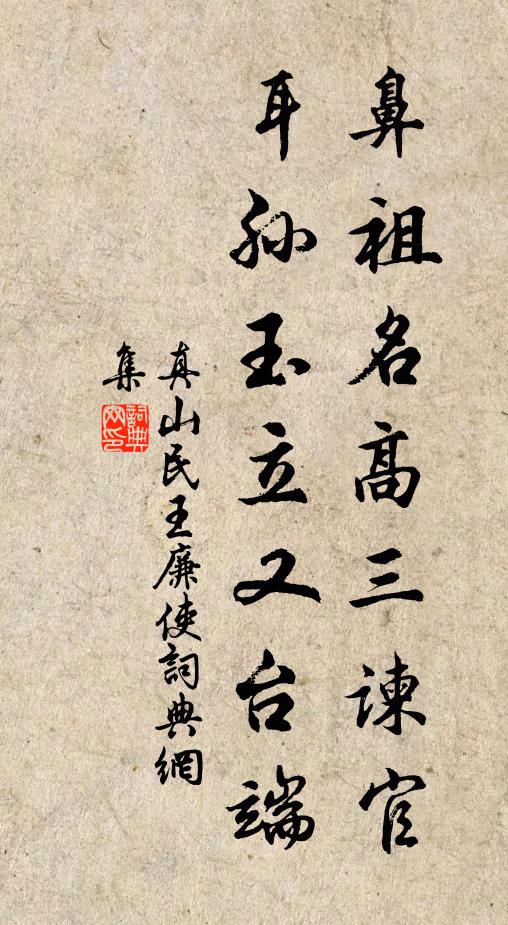 鼻祖名高三諫官
耳孫玉立又台端
真山民王廉使詞典網
集
詞典网印